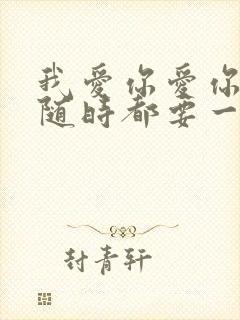 我爱你爱你
随时都要一
封青轩